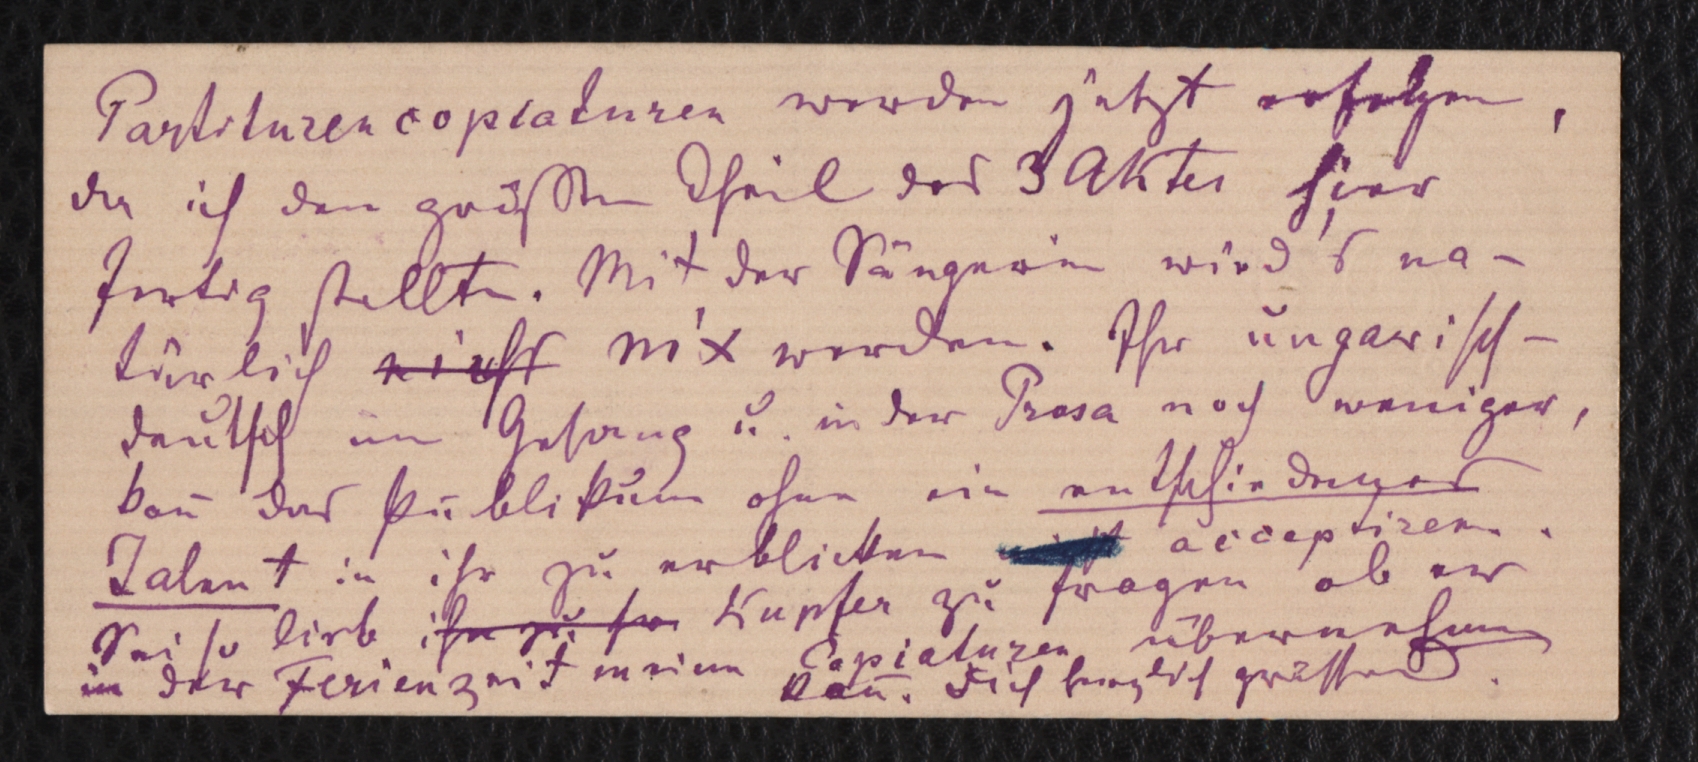 Partiturencopiaturen werden jetzt erfolgen,
da ich den größten Theil des 3 Aktes hier
fertig stellte. Mit der Sängerin wird's na-
türlich nichts nix werden. Ihr ungarisch-
deutsch im Gesang u. in der Prosa noch weniger,
kan̄ das Publikum ohne ein entschiedenes
Talent in ihr zu erblicken acceptiren.
Sei so lieb ihn zu fra Kupfer zu fragen ob er
in der Ferienzeit meine Copiaturen übernehmen
kan̄. Dich herzlich grüssend.